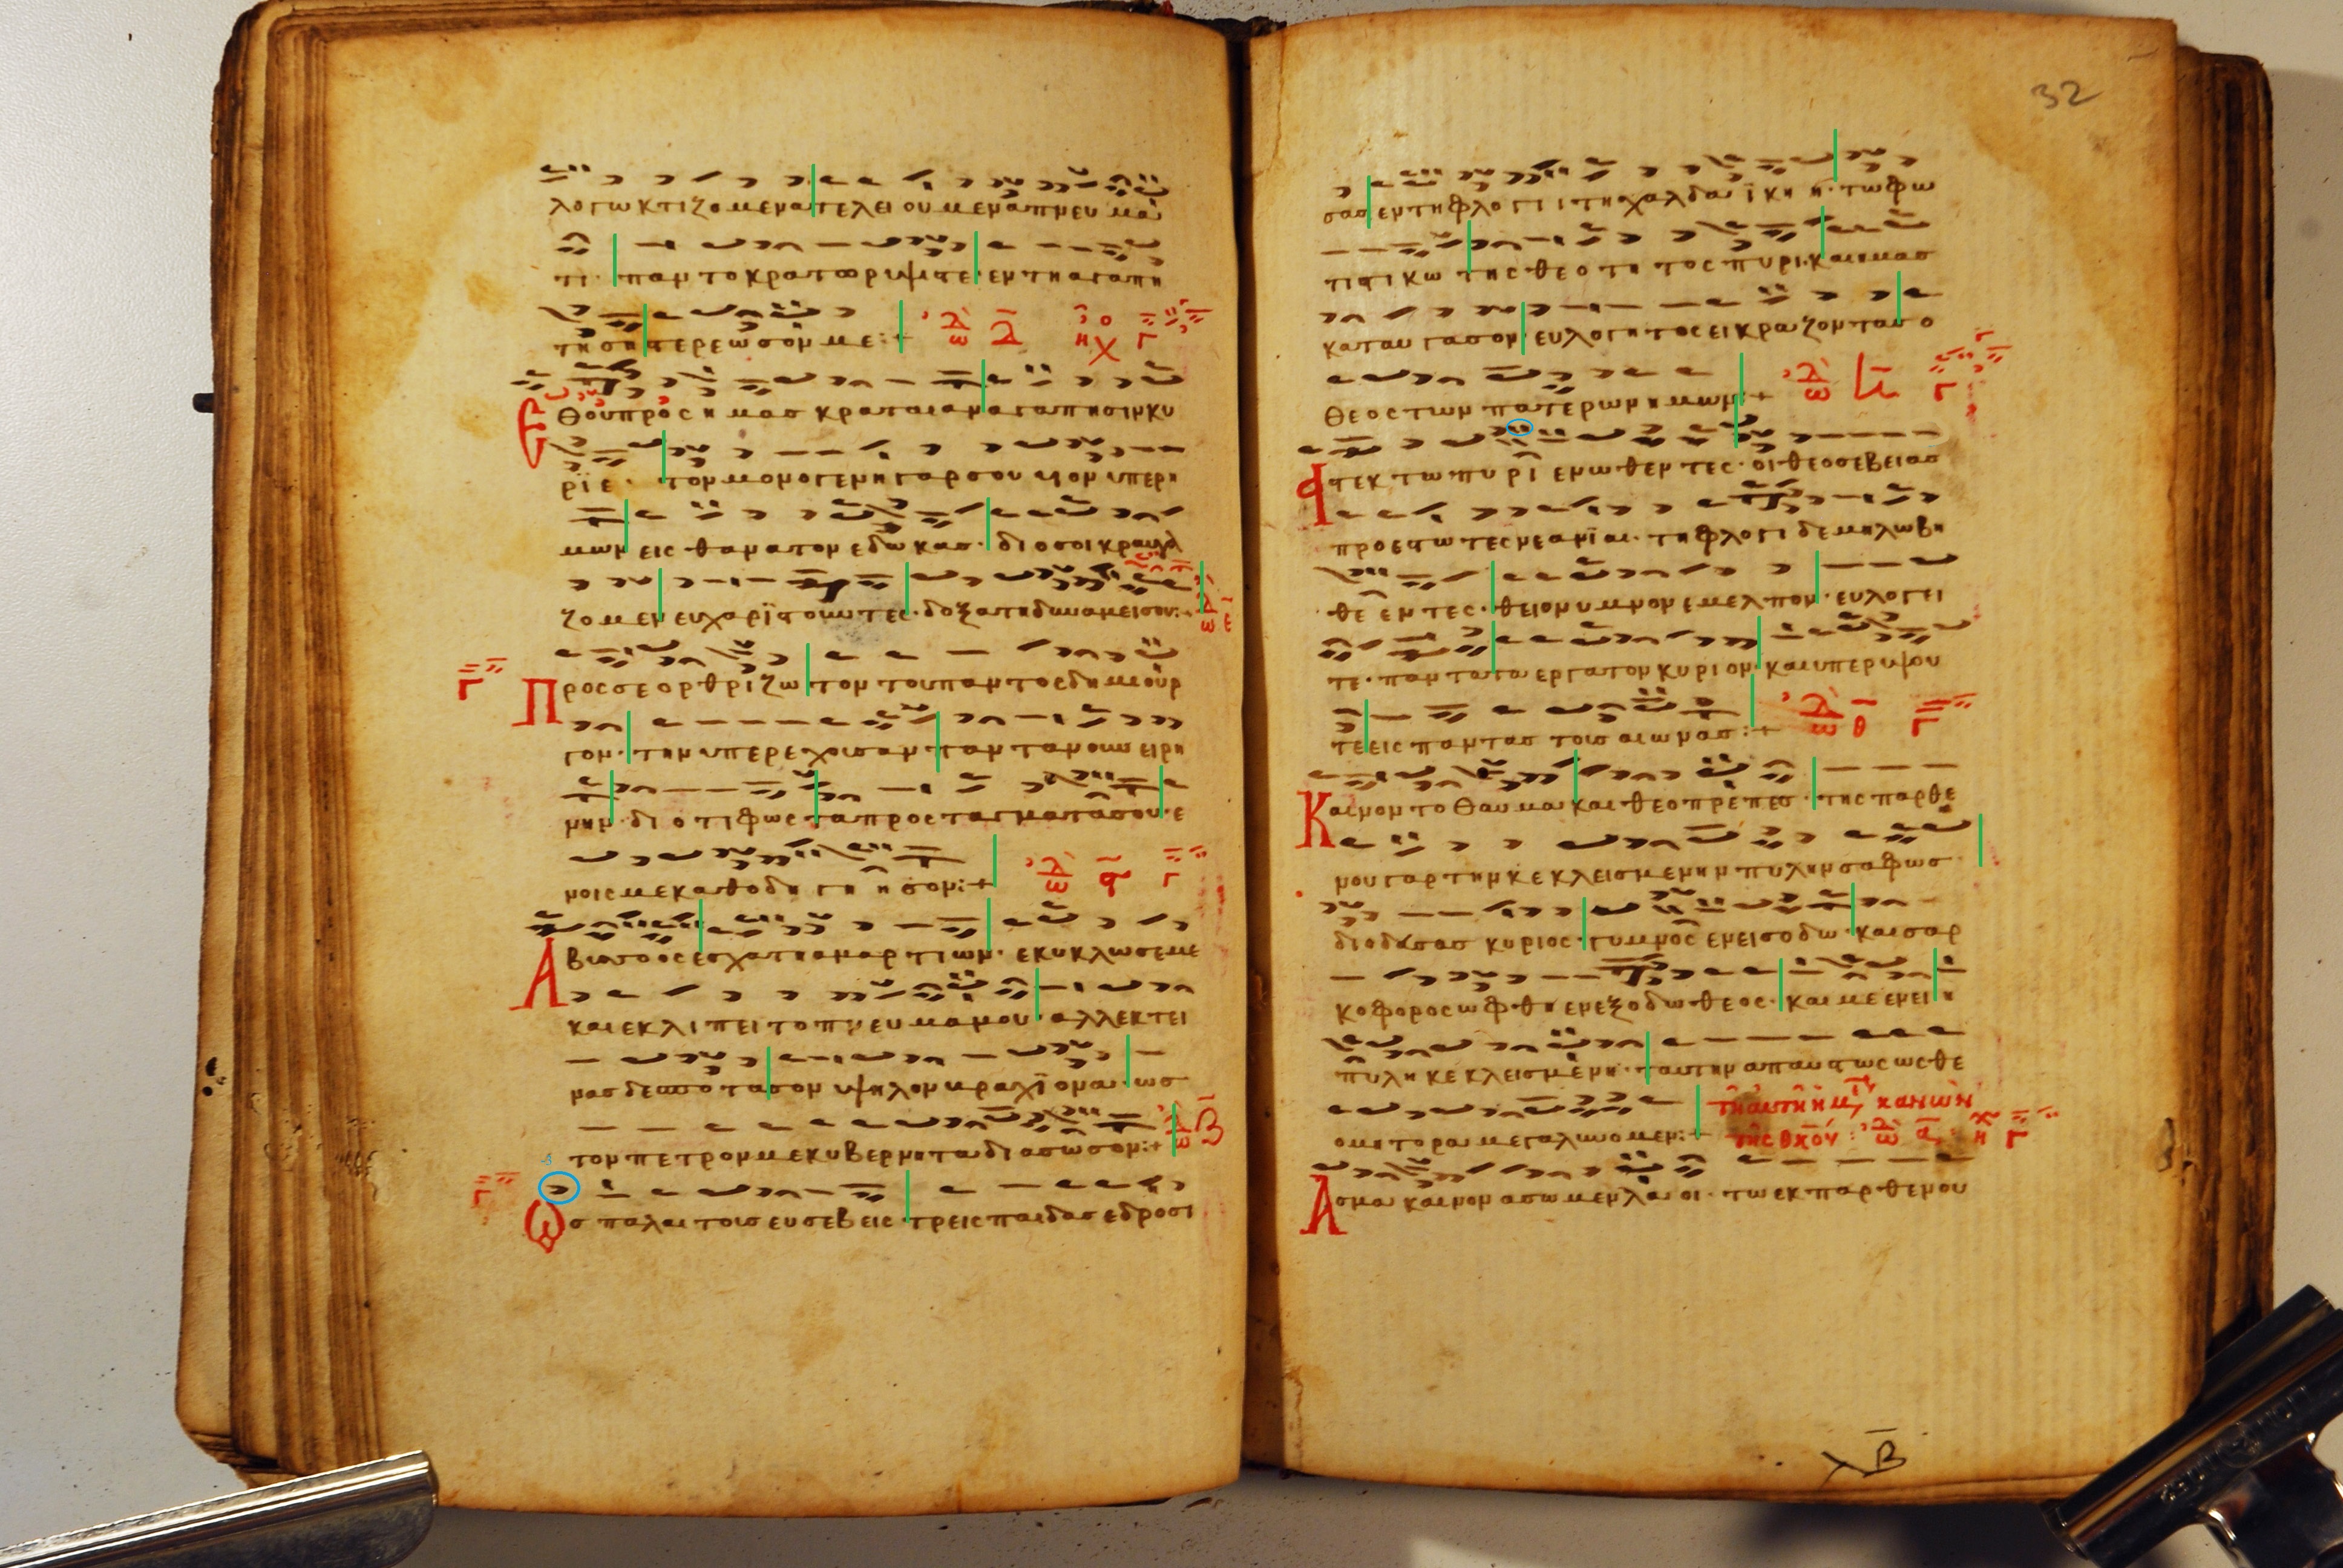 λογω κτιζομενα τελειουμενα πνευμα
τι. παντοκρατωρ υψιστε. εν τη αγαπη
τη ση στερεωσον με:+ ᾠδ Δ ἦχ ο Γ
Εθου προς ημας κραταιαν αγαπησιν κυ
ριε. τον μονογενη γαρ σου υιον υπερ η
μων εις θανατον εδωκας. διο σοι κραυγα
ζομεν ευχαριστουντες. δοξα τη δυναμει σου:+ ᾠδ ε
Γ Προς σε ορθριζω τον του παντος δημιουρ
γον. την υπερεχουσαν παντα νουν ειρη
νην. διοτι φως τα προσταγματα σου. ε
ν οις με καθοδηγησον:+ ᾠδ ϛ Γ
Αβυσσος εσχατη αμαρτιων. εκυκλωσε με
και εκλιπει το πνευμα μου. αλλ εκτει
νας δεσποτα σον υψηλον βραχιονα. ως
τον πετρον με κυβερνητα διασωσον:+ ᾠδ
Γ Ως παλαι τους ευσεβεις τρεις παιδας εδροσι
32
σας εν τη φλογι τη χαλδαικη η. τω φω
τιστικω της θεοτητος πυρι. και ημας
καταυγασον. ευλογητος ει κραζοντας ο
θεος των πατερων ημων:+ ᾠδ η Γ
Στεκτω πυρι ενωθεντες. οι θεοσεβειας
προεστωτες νεανιαι. τη φλογι δε μη λωβη
θεεντες. θειον υμνον εμελπον. ευλογει
τε. παντα τα εργα τον κυριον. και υπερυψου
τε εις παντας τους αιωνας:+ ᾠδ θ Γ
Καινον το θαυμα και θεοπρεπες. της παρθε
νου γαρ την κεκλεισμενην πυλην σαφως
διοδευσας κυριος. γυμνος εν εισοδω. και σαρ
κοφορος ωφθη εν εξοδω θεος. και μενει η
πυλη κεκλεισμενη. ταυτην απαυστως ως θε
ομητορα μεγαλυνομεν:+ τη αυτη ημ κανων
της θκου: ᾠδ α: ἦχ Γ
Ασμα καινον ασωμεν λαοι. τω εκ παρθενου